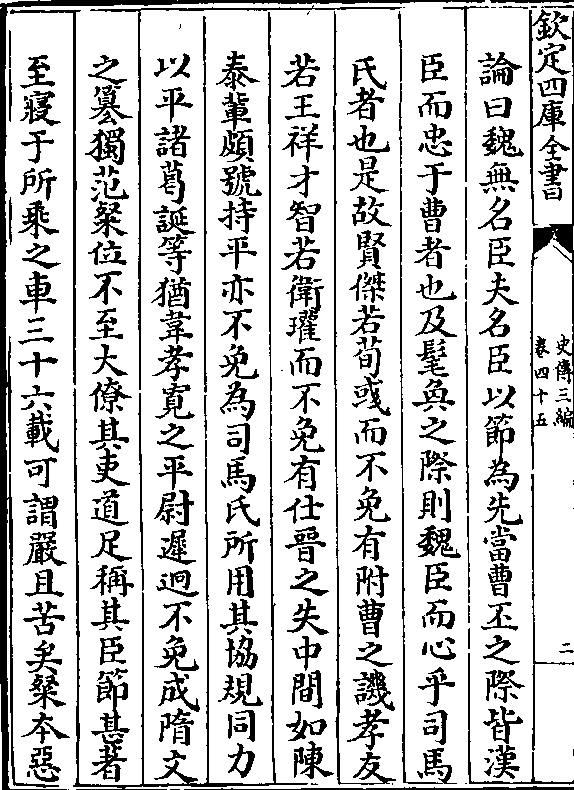 欽定四庫全書
史傳三編
卷四十五
二
論曰魏無名臣夫名臣以節為先當曹丕之際皆漢
臣而忠于曹者也及髦奐之際則魏臣而心乎司馬
氏者也是故賢傑若荀彧而不免有附曹之譏孝友
若王祥才智若衛瓘而不免有仕晉之失中間如陳
泰輩頗號持平亦不免為司馬氏所用其協規同力
以平諸葛誕等猶韋孝寛之平尉遲迥不免成隋文
之簒獨范粲位不至大僚其吏道足稱其臣節甚著
至寢于所乘之車三十六載可謂嚴且苦矣粲本惡